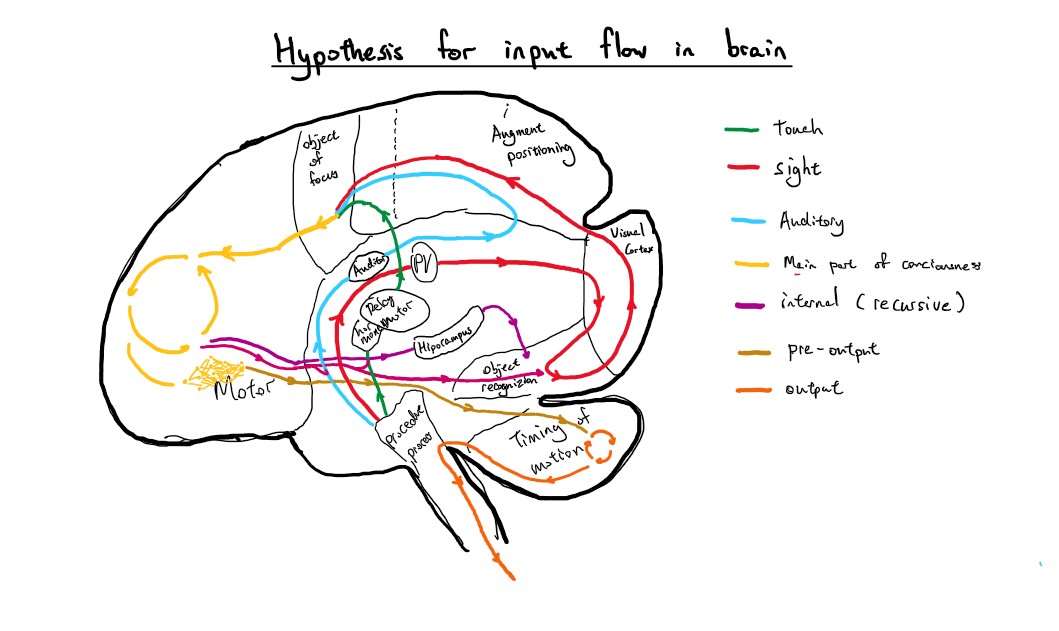 Hypothesis for input flow in brain
object
of
focus
Augment
positioning
Visual
Cortex
Auditory
PV
Delay
motor
hormonal
Hipocampus
object
recognizion
Motor
procedure
process
Timing of
motion
touch
sight
Auditory
Main part of conciousness
internal (recursive)
pre-output
output